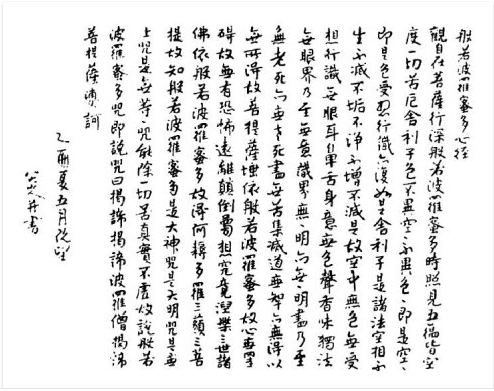 般若波羅蜜多心經
觀自在菩薩行深般若波羅蜜多時照見五蘊皆空
度一切苦厄舍利子色不異空〻不異色〻即是空〻
即是色受想行識亦復如是舍利子是諸法空相不
生不滅不垢不淨不增不減是故空中無色無受
想行識無眼耳鼻舌身意無色聲香味觸法
無眼界乃至無意識界無明亦無明盡乃至
無老死亦無老死盡無苦集滅道無智亦無得以
無所得故菩提薩埵依般若波羅蜜多故心無罣
礙故無有恐怖遠離顛倒夢想究竟涅槃三世諸
佛依般若波羅蜜多故得阿耨多羅三藐三菩
提故知般若波羅蜜多是大神咒是大明咒是無
上咒是無等〻咒能除一切苦真實不虛故說般若
波羅蜜多咒即說咒曰揭諦揭諦波羅僧揭諦
菩提薩婆訶
夏五月既望
八大山人書